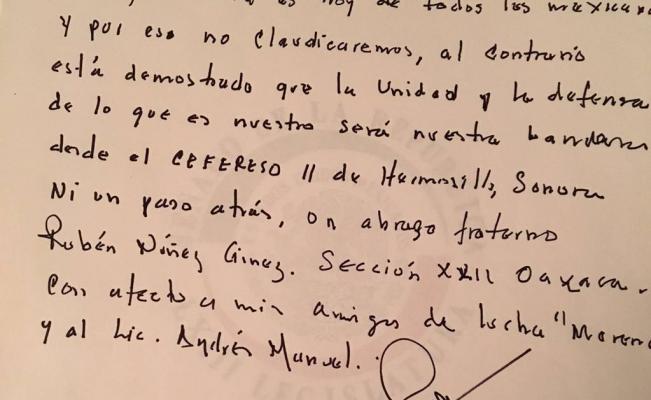 es hoy de todos los mexicanos
Y por eso no claudicaremos, al contrario
está demostrado que la Unidad y la defensa
de lo que es nuestro será nuestra bandera
desde el CEFERESO 11 de Hermosillo, Sonora
Ni un paso atrás, un abrazo fraterno
Rubén Núñez Ginez. Sección XXII Oaxaca.
Con afecto a mis amigos de lucha "Morena
y al Lic. Andrés Manuel.
LEGISLATURA